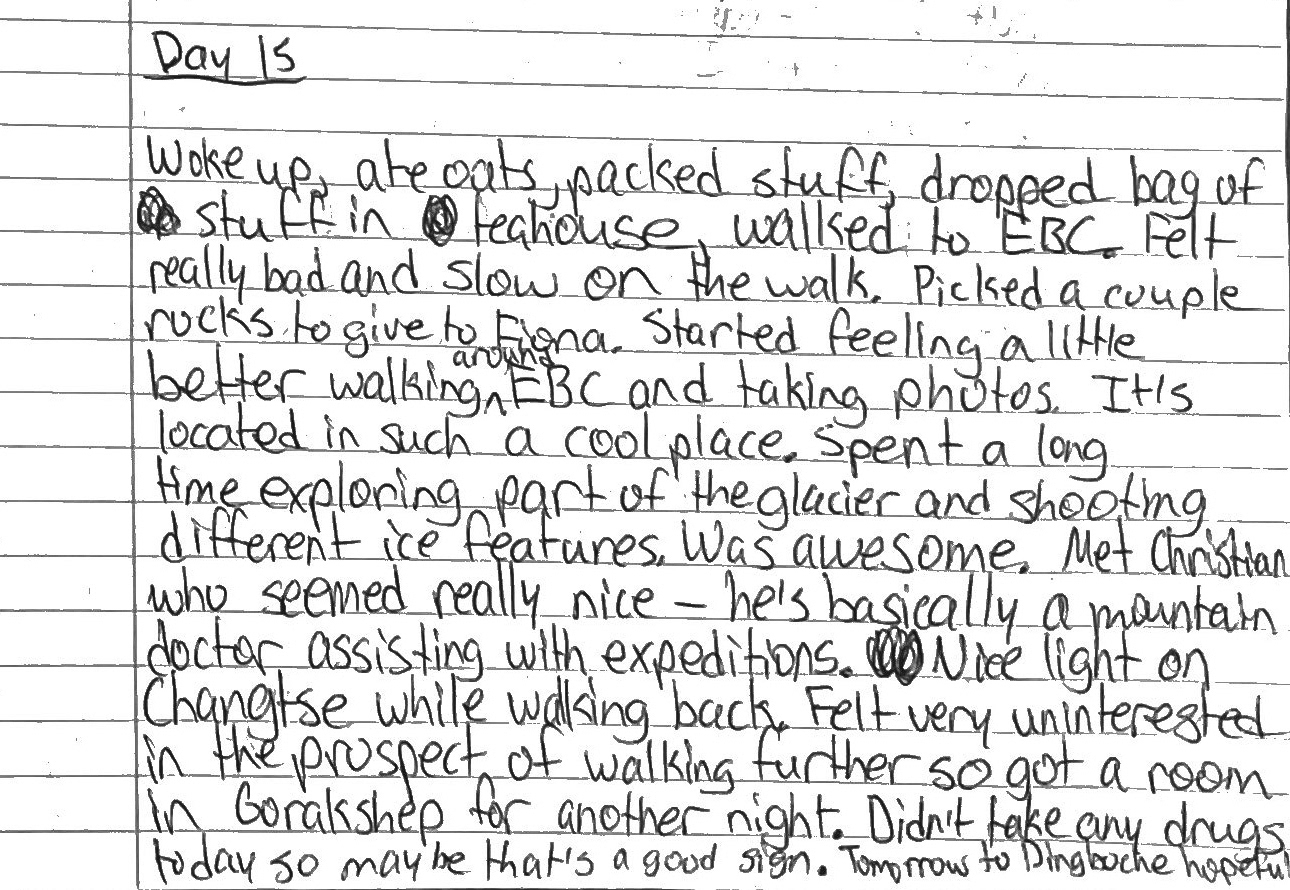 Day 15
Woke up, ate oats, packed stuff, dropped bag of
stuff in teahouse, walked to EBC. Felt
really bad and slow on the walk. Picked a couple
rocks to give to Fiona. Started feeling a little
better walking around EBC and taking photos. It's
located in such a cool place. Spent a long
time exploring part of the glacier and shooting
different ice features. Was awesome. Met Christian
who seemed really nice – he's basically a mountain
doctor assisting with expeditions. Nice light on
Changtse while walking back. Felt very uninterested
in the prospect of walking further so got a room
in Gorakshep for another night. Didn't take any drugs
today so maybe that's a good sign. Tomorrow to Dingboche hopeful